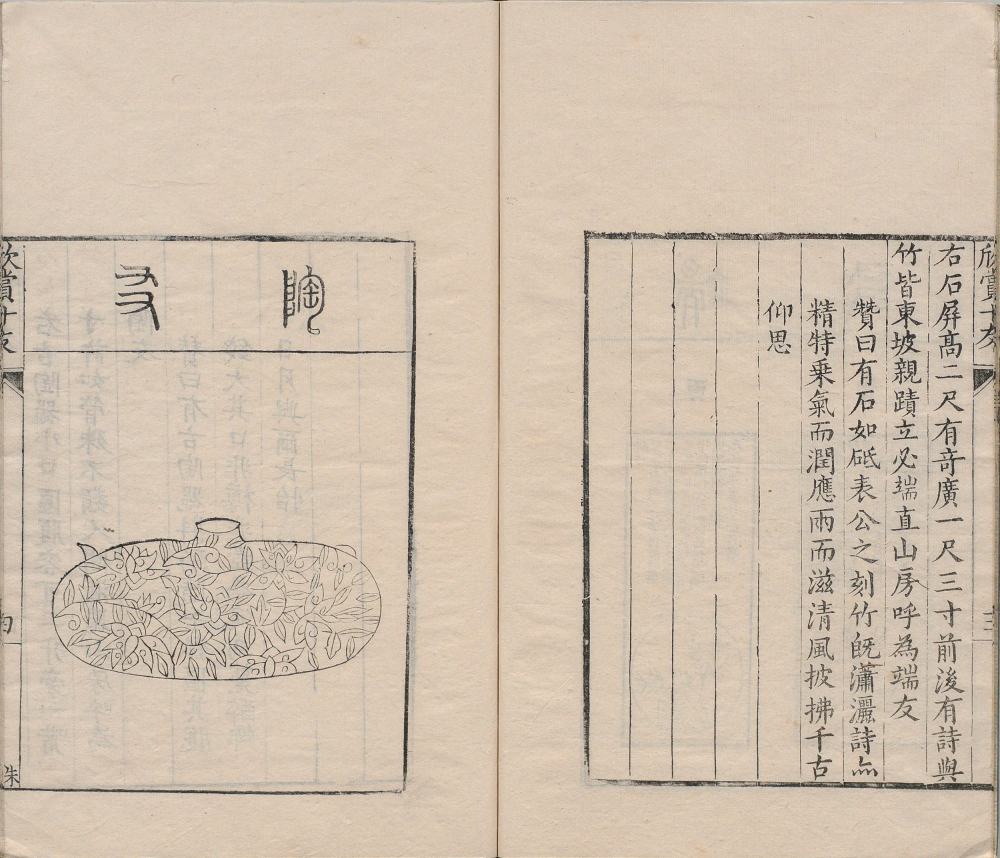 欣賞十友
右石屏髙二尺有竒廣一尺三寸前後有詩與
竹皆東坡親蹟立必端直山房呼為端友
贊曰有石如砥表公之刻竹旣瀟灑詩亦
精特乗氣而潤應雨而滋清風披拂千古
仰思
陶友
欣賞十友
朱